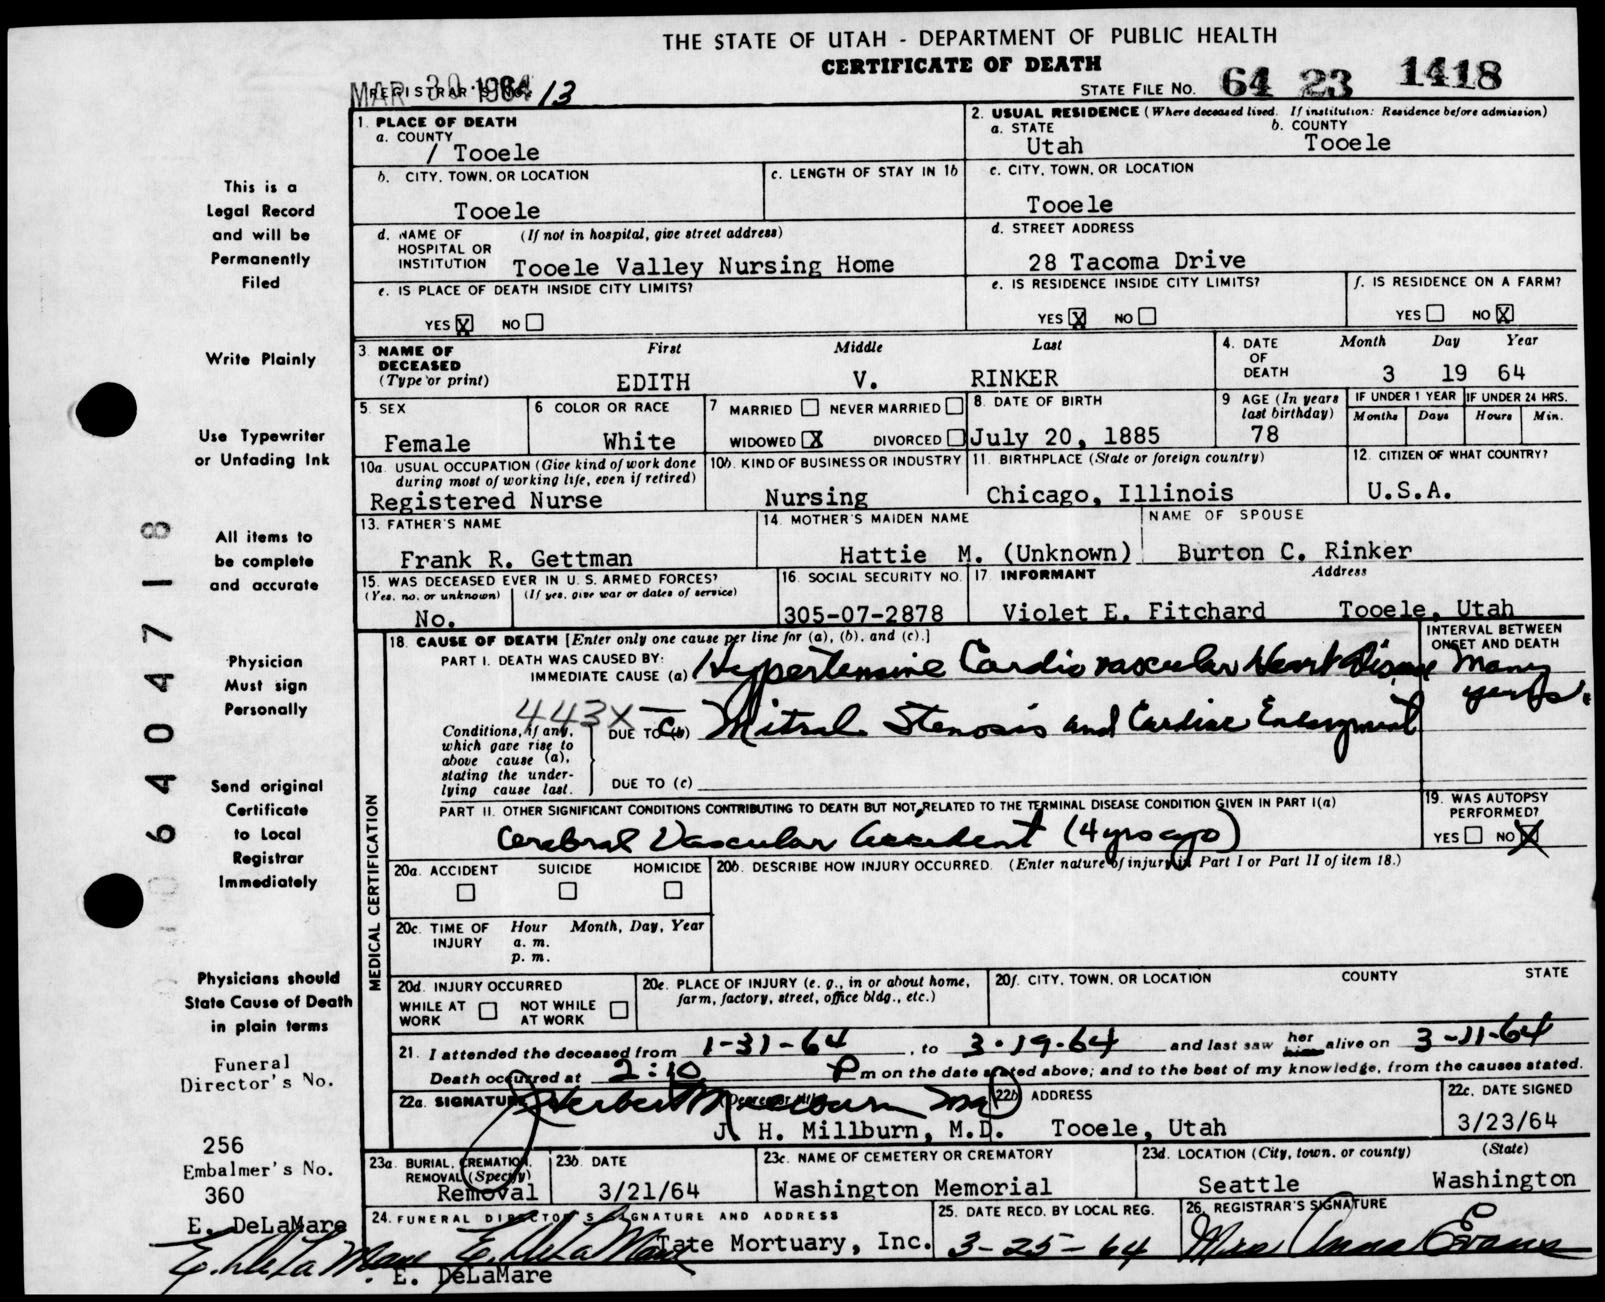 THE STATE OF UTAH - DEPARTMENT OF PUBLIC HEALTH
CERTIFICATE OF DEATH
MAR 30 1964
REGISTRAR'S NO. 13
STATE FILE NO. 64 23 1418
1. PLACE OF DEATH
a. COUNTY
/ Tooele
2. USUAL RESIDENCE (Where deceased lived. If institution: Residence before admission)
a. STATE b. COUNTY
Utah Tooele
b. CITY, TOWN, OR LOCATION
Tooele
c. LENGTH OF STAY IN 1b
c. CITY, TOWN, OR LOCATION
Tooele
d. NAME OF HOSPITAL OR INSTITUTION (If not in hospital, give street address)
Tooele Valley Nursing Home
d. STREET ADDRESS
28 Tacoma Drive
e. IS PLACE OF DEATH INSIDE CITY LIMITS?
YES X NO
e. IS RESIDENCE INSIDE CITY LIMITS?
YES X NO
f. IS RESIDENCE ON A FARM?
YES NO X
3. NAME OF DECEASED (Type or print)
First Middle Last
EDITH V. RINKER
4. DATE OF DEATH
Month Day Year
3 19 64
5 SEX
Female
6 COLOR OR RACE
White
7 MARRIED NEVER MARRIED
WIDOWED X DIVORCED
8. DATE OF BIRTH
July 20, 1885
9 AGE (In years last birthday)
78
IF UNDER 1 YEAR
Months Days
IF UNDER 24 HRS.
Hours Min.
10a. USUAL OCCUPATION (Give kind of work done during most of working life, even if retired)
Registered Nurse
10b. KIND OF BUSINESS OR INDUSTRY
Nursing
11. BIRTHPLACE (State or foreign country)
Chicago, Illinois
12. CITIZEN OF WHAT COUNTRY?
U.S.A.
13. FATHER'S NAME
Frank R. Gettman
14. MOTHER'S MAIDEN NAME
Hattie M. (Unknown)
NAME OF SPOUSE
Burton C. Rinker
15. WAS DECEASED EVER IN U. S. ARMED FORCES?
(Yes, no, or unknown) (If yes, give war or dates of service)
No.
16. SOCIAL SECURITY NO.
305-07-2878
17. INFORMANT Address
Violet E. Fitchard Tooele, Utah
18. CAUSE OF DEATH [Enter only one cause per line for (a), (b), and (c).]
INTERVAL BETWEEN ONSET AND DEATH
PART I. DEATH WAS CAUSED BY:
IMMEDIATE CAUSE (a) Hypertensive Cardio vascular Heart Disease Many years
443X
Conditions, if any, which gave rise to above cause (a), stating the underlying cause last.
DUE TO (b) c Mitral Stenosis and Cardiac Enlargement
DUE TO (c)
PART II. OTHER SIGNIFICANT CONDITIONS CONTRIBUTING TO DEATH BUT NOT RELATED TO THE TERMINAL DISEASE CONDITION GIVEN IN PART I(a)
Cerebral Vascular Accident (4 yrs ago)
19. WAS AUTOPSY PERFORMED?
YES NO X
MEDICAL CERTIFICATION
20a. ACCIDENT SUICIDE HOMICIDE
20b. DESCRIBE HOW INJURY OCCURRED. (Enter nature of injury in Part I or Part II of item 18.)
20c. TIME OF INJURY Hour Month, Day, Year
a. m.
p. m.
20d. INJURY OCCURRED
WHILE AT WORK NOT WHILE AT WORK
20e. PLACE OF INJURY (e. g., in or about home, farm, factory, street, office bldg., etc.)
20f. CITY, TOWN, OR LOCATION COUNTY STATE
21. I attended the deceased from 1-31-64, to 3-19-64 and last saw her him alive on 3-11-64
Death occurred at 2:10 P m on the date stated above; and to the best of my knowledge, from the causes stated.
22a. SIGNATURE (Degree or title)
J Herbert Millburn MD
J. H. Millburn, M.D.
22b ADDRESS
Tooele, Utah
22c. DATE SIGNED
3/23/64
23a. BURIAL, CREMATION, REMOVAL (Specify)
Removal
23b. DATE
3/21/64
23c. NAME OF CEMETERY OR CREMATORY
Washington Memorial
23d. LOCATION (City, town, or county) (State)
Seattle Washington
24. FUNERAL DIRECTOR'S SIGNATURE AND ADDRESS
E. DeLaMare Tate Mortuary, Inc.
E. DeLaMare
25. DATE RECD. BY LOCAL REG.
3-25-64
26. REGISTRAR'S SIGNATURE
Mrs Anna Evans
This is a
Legal Record
and will be
Permanently
Filed
Write Plainly
Use Typewriter
or Unfading Ink
All items to
be complete
and accurate
Physician
Must sign
Personally
Send original
Certificate
to Local
Registrar
Immediately
Physicians should
State Cause of Death
in plain terms
Funeral
Director's No.
256
Embalmer's No.
360
E. DeLaMare
E. DeLaMare
64 04718